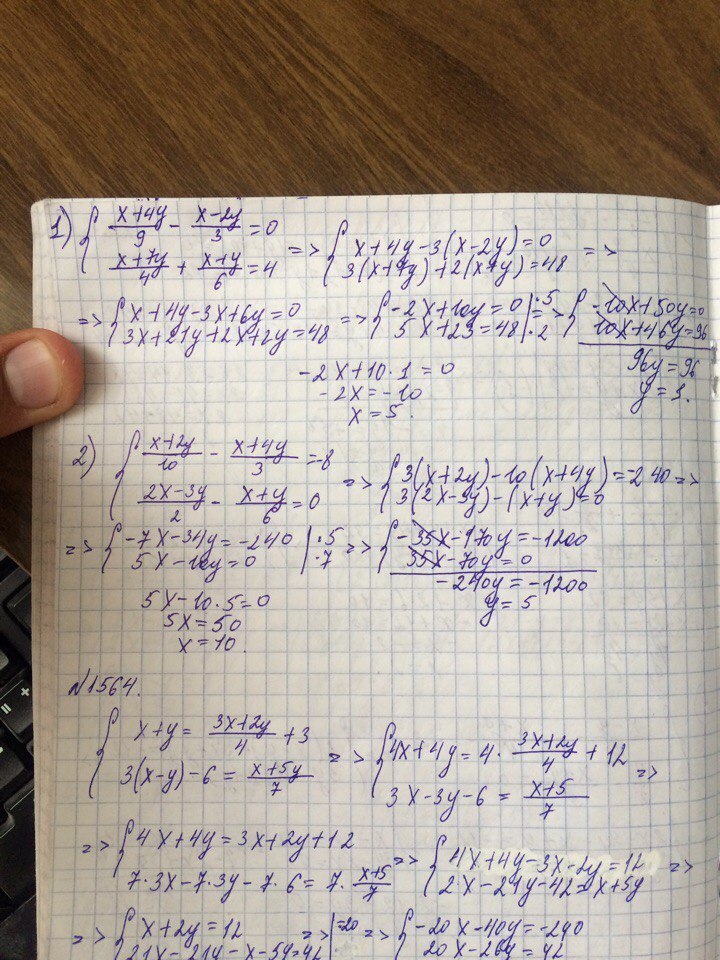 1) { (x+4y)/9 - (x-2y)/3 = 0
(x+7y)/4 + (x+y)/6 = 4 => { x+4y-3(x-2y)=0
3(x+7y)+2(x+y)=48 =>
=> { x+4y-3x+6y=0
3x+21y+2x+2y=48 => { -2x+10y=0 | ·5
5x+23=48 | ·2 => { -10x+50y=0
10x+46y=96
96y=96
y=1.
-2x+10·1=0
-2x=-10
x=5.
2) { (x+2y)/10 - (x+4y)/3 = -8
(2x-3y)/2 - (x+y)/6 = 0 => { 3(x+2y)-10(x+4y)=-240
3(2x-3y)-(x+y)=0 =>
=> { -7x-34y=-240 | ·5
5x-10y=0 | ·7 => { -35x-170y=-1200
35x-70y=0
-240y=-1200
y=5
5x-10·5=0
5x=50
x=10.
N1564.
{ x+y = (3x+2y)/4 + 3
3(x-y)-6 = (x+5y)/7 => { 4x+4y=4·(3x+2y)/4+12
3x-3y-6 = (x+5)/7 =>
=> { 4x+4y=3x+2y+12
7·3x-7·3y-7·6=7·(x+5)/7 => { 4x+4y-3x-2y=12
2x-21y-42=x+5y =>
=> { x+2y=12
21x-21y-x-5y=42 => | =20 => { -20x-40y=-240
20x-26y=42